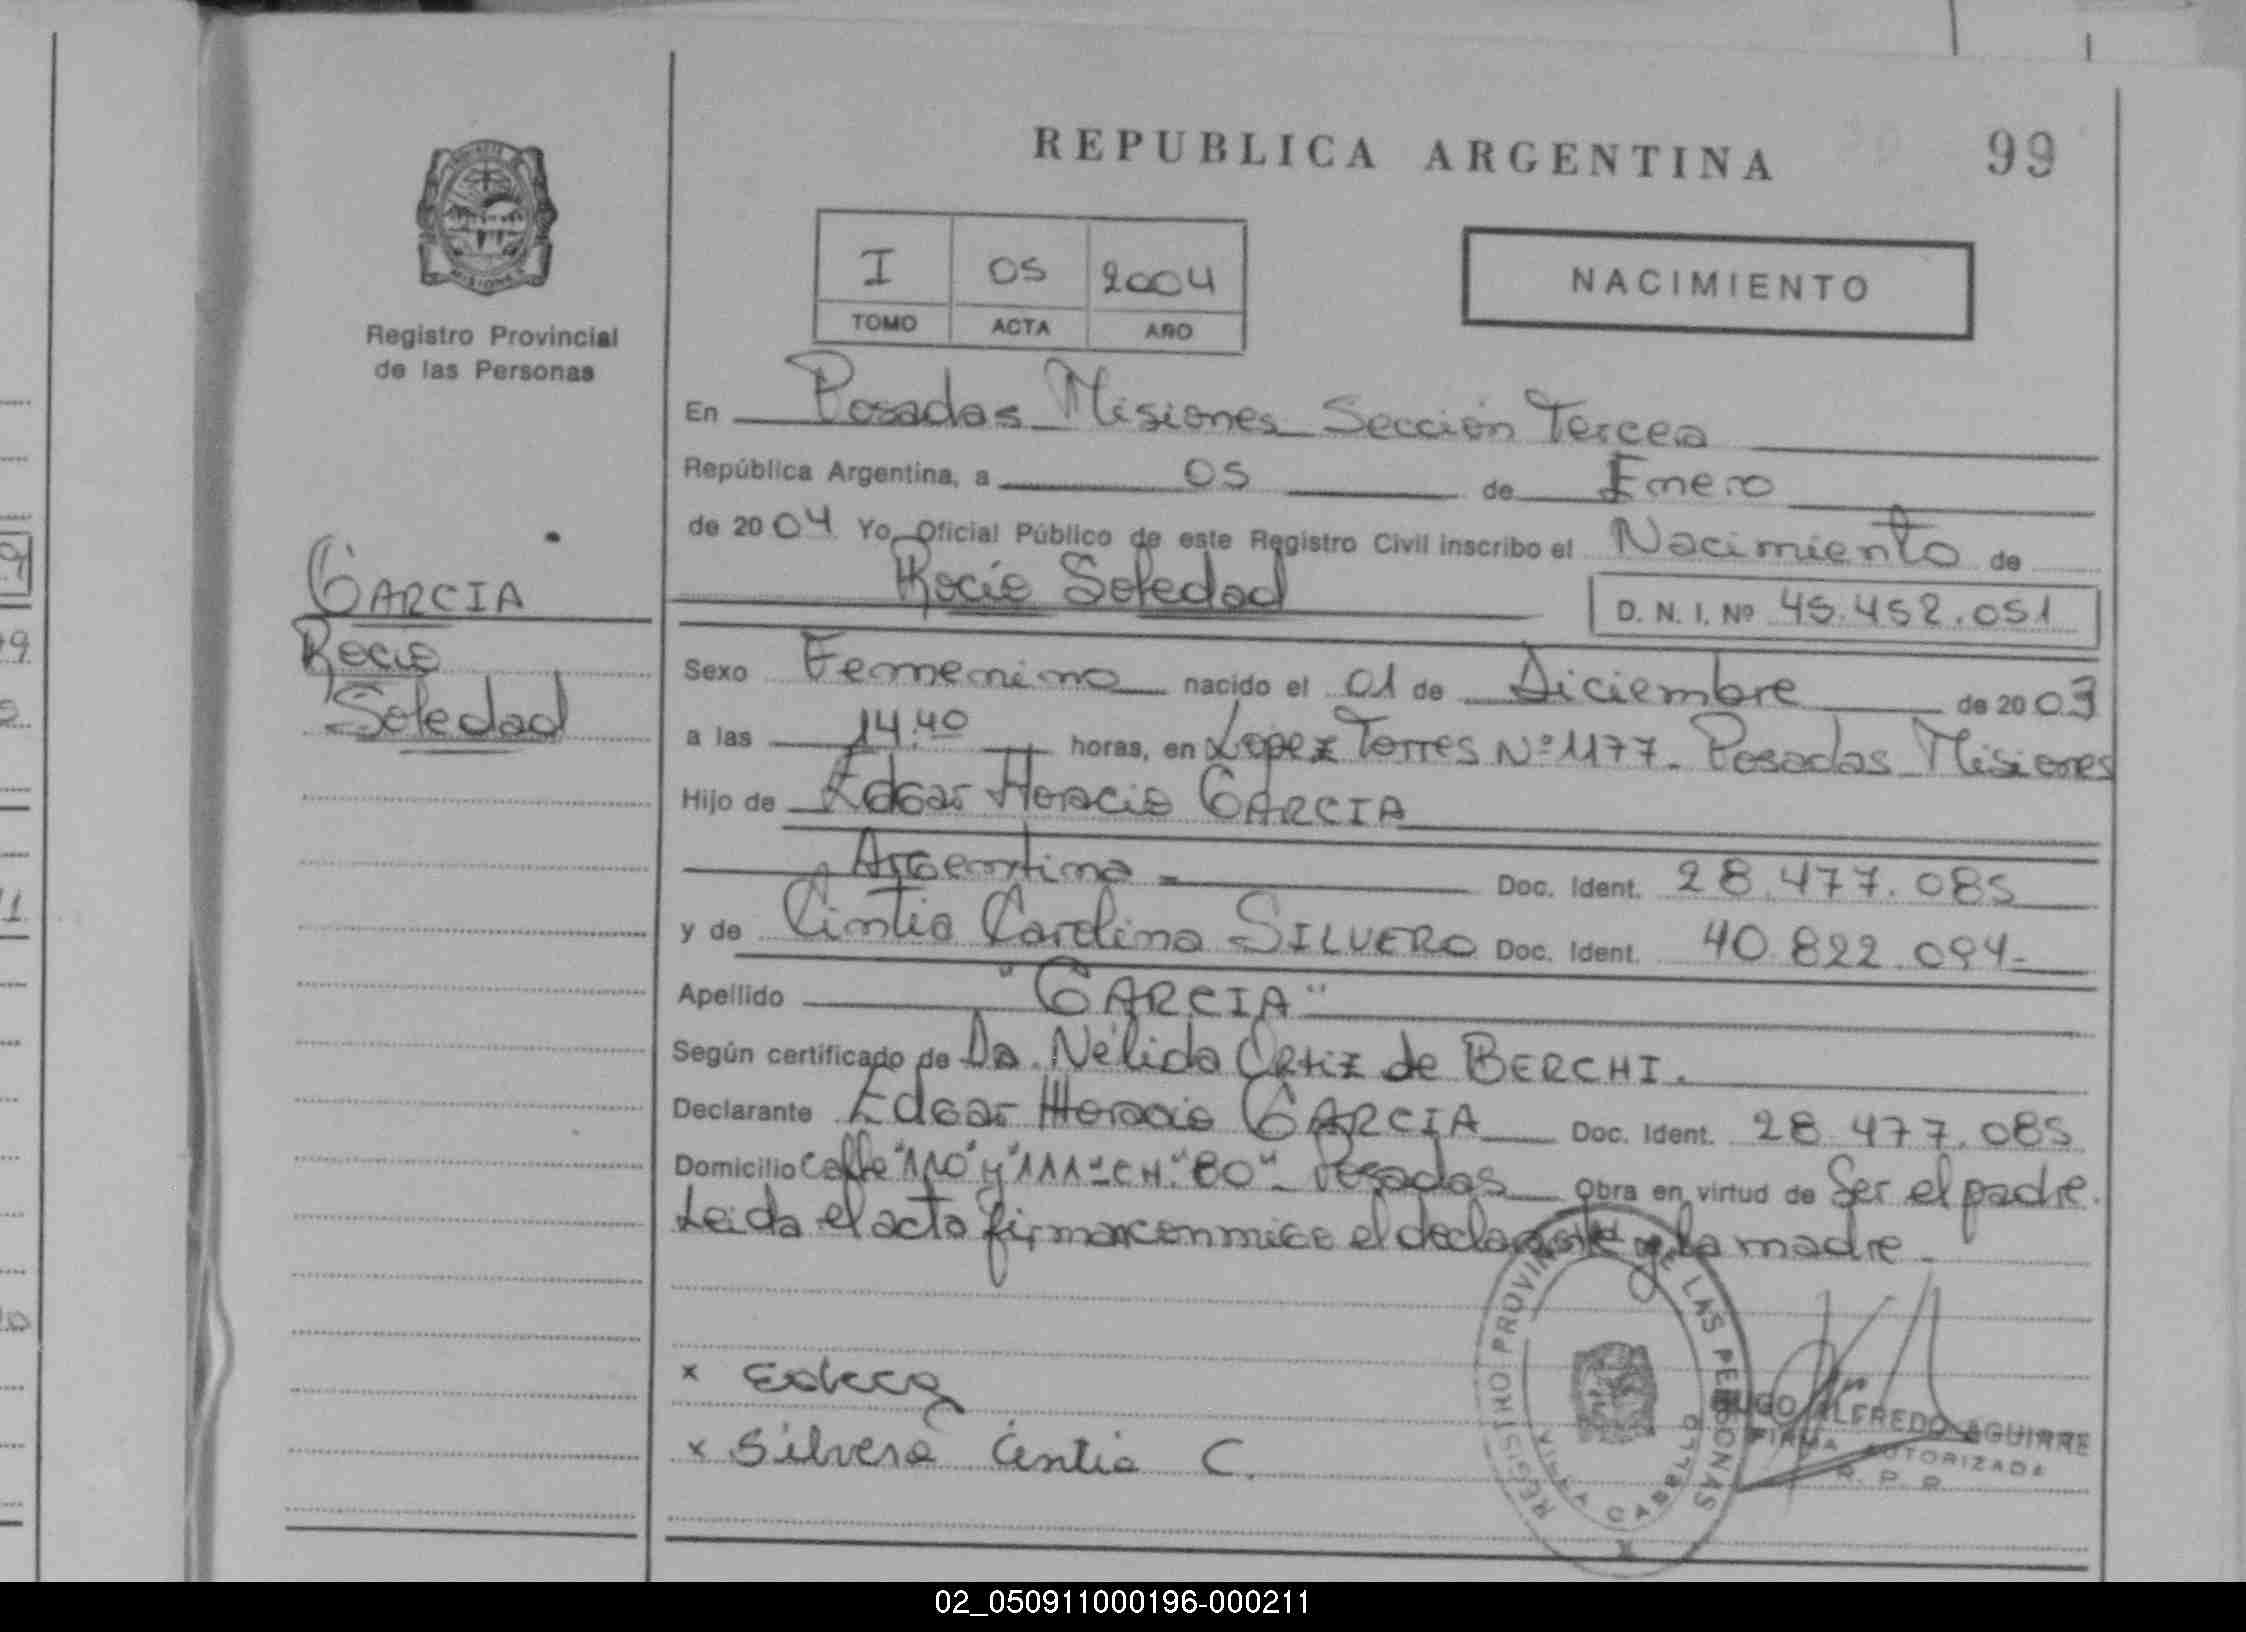 REPUBLICA ARGENTINA
99
Registro Provincial
de las Personas
I 05 2004
TOMO ACTA AÑO
NACIMIENTO
GARCIA
Rocio
Soledad
En Posadas Misiones Sección Tercera
República Argentina, a 05 de Enero
de 2004 Yo Oficial Público de este Registro Civil inscribo el Nacimiento de
Rocio Soledad
D. N. I. Nº 45.452.051
Sexo Femenino nacido el 01 de Diciembre de 2003
a las 14,40 horas, en Lopez Torres Nº 1177 - Posadas Misiones
Hijo de Edgar Horacio GARCIA
Argentina - Doc. Ident. 28.477.085
y de Cintia Carolina SILVERO Doc. Ident. 40.822.094-
Apellido "GARCIA"
Según certificado de Da. Nélida Ortiz de BERCHI.
Declarante Edgar Horacio GARCIA Doc. Ident. 28.477.085
Domicilio Calle "110" y "111" - CH. "80" - Posadas Obra en virtud de Ser el padre.
Leida el acta firman conmigo el declarante y la madre
x
x Silvero Cintia C.
REGISTRO PROVINCIAL DE LAS PERSONAS
VILLA CABELLO
HUGO ALFREDO AGUIRRE
FIRMA AUTORIZADA
R. P. P.
02_050911000196-000211